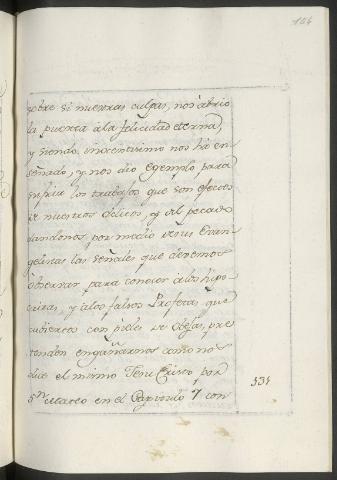 104
sobre si nuestras culpas, nos abrio
la puerta a la felicidad eterna,
y siendo inocentisimo nos ha en
señado, y nos dio egemplo para
sufrir los trabajos que son efectos
de nuestros delitos, y del pecado
dandonos por medio de sus Evan
gelistas las señales que devemos
observar para conocer a los hipo
critas, y a los falsos Profetas, que
cubiertos con pieles de Obejas, pre
tenden engañarnos como nos
dice el mismo Jesu Cristo por
Sn Mateo en el Capitulo 7 con
535